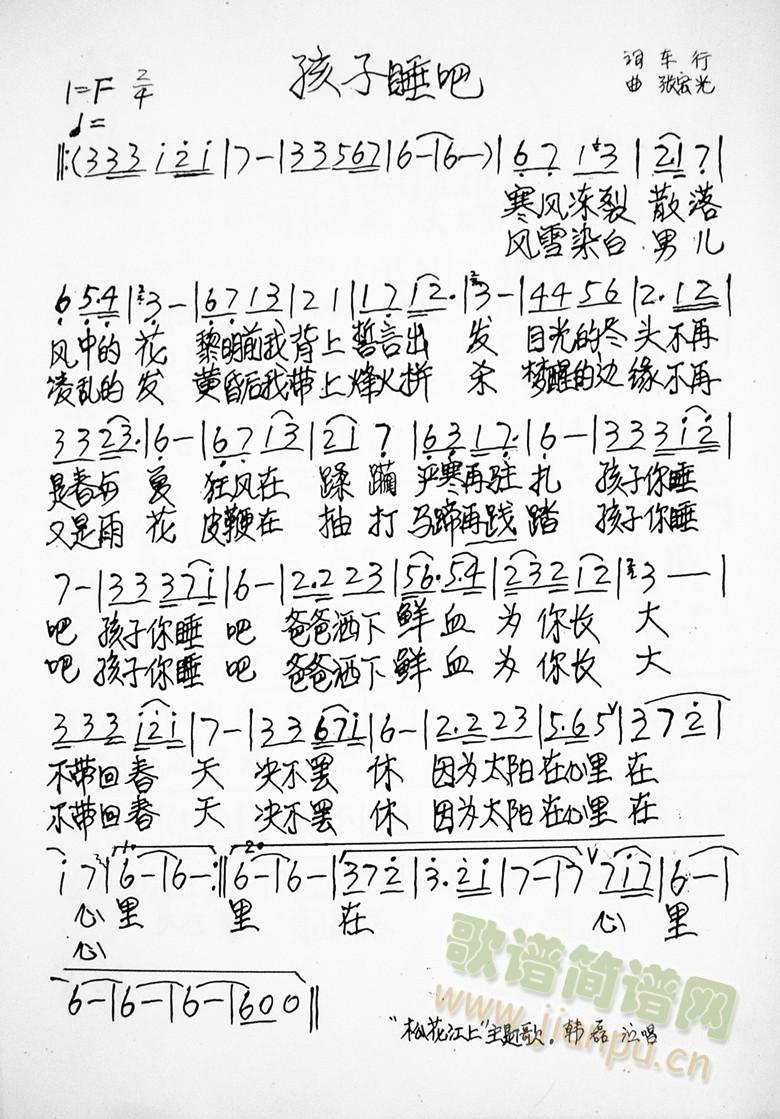 孩子睡吧
1=F 2/4
♩=
词 车行
曲 张宏光
‖:(333 i2i|7-|33567|6-|6-)|67 1 3|2·17|
寒风冻裂 散落
风雪染白 男儿
65·4|3-|6713|21|1712·|3-|4456|2·12|
风中的花 黎明前我背上誓言出发 目光的尽头不再
凌乱的发 黄昏后我带上烽火拼杀 梦醒的边缘不再
3323·|6-|6713|2i7|6317·|6-|333i2|
是春与夏 狂风在 蹂躏 严寒再驻扎 孩子你睡
又是雨花 皮鞭在 抽打 马蹄再践踏 孩子你睡
7-|3337i|6-|2·223|56·5·4|23212|3--|
吧 孩子你睡 吧 爸爸洒下 鲜血 为 你长 大
吧 孩子你睡 吧 爸爸洒下 鲜血 为 你长 大
333i2i|7-|3367i|6-|2·223|5·65∨|372|
不带回春 天 决不罢 休 因为太阳在心里 在
不带回春 天 决不罢 休 因为太阳在心里 在
i7|6-|6-:‖6-|6-|372|3·2i|7-|7∨7i7|6-|
心 里 里 在 心 里
心
6-|6-|6-|600‖
"松花江上"主题歌，韩磊演唱
歌谱简谱网
www.jianpu.cn